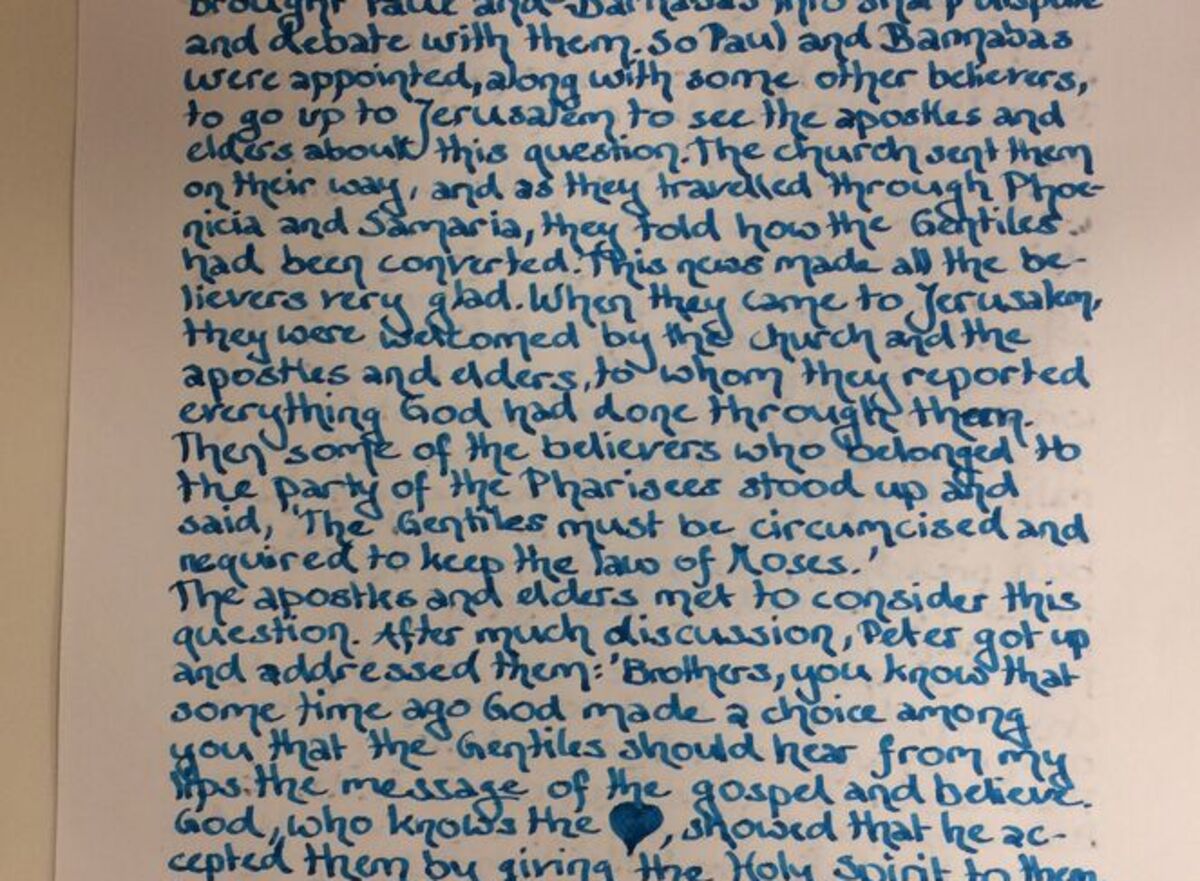 brought Paul and Barnabas into sharp dispute
and debate with them. So Paul and Barnabas
were appointed, along with some other believers,
to go up to Jerusalem to see the apostles and
elders about this question. The church sent them
on their way, and as they travelled through Phoe-
nicia and Samaria, they told how the Gentiles
had been converted. This news made all the be-
lievers very glad. When they came to Jerusalem,
they were welcomed by the church and the
apostles and elders, to whom they reported
everything God had done through them.
Then some of the believers who belonged to
the party of the Pharisees stood up and
said, 'The Gentiles must be circumcised and
required to keep the law of Moses.'
The apostles and elders met to consider this
question. After much discussion, Peter got up
and addressed them: 'Brothers, you know that
some time ago God made a choice among
you that the Gentiles should hear from my
lips the message of the gospel and believe.
God, who knows the ♥, showed that he ac-
cepted them by giving the Holy Spirit to them